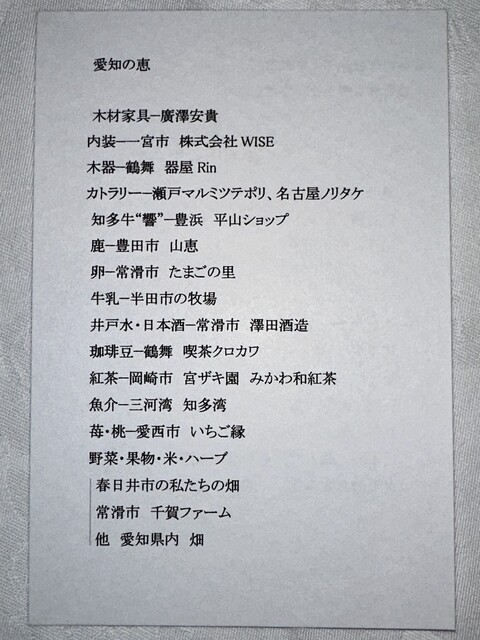 愛知の恵
木材家具—廣澤安貴
内装—一宮市　株式会社 WISE
木器—鶴舞　器屋 Rin
カトラリー—瀬戸マルミツテポリ、名古屋ノリタケ
知多牛“響”—豊浜　平山ショップ
鹿—豊田市　山恵
卵—常滑市　たまごの里
牛乳—半田市の牧場
井戸水・日本酒—常滑市　澤田酒造
珈琲豆—鶴舞　喫茶クロカワ
紅茶—岡崎市　宮ザキ園　みかわ和紅茶
魚介—三河湾　知多湾
苺・桃—愛西市　いちご縁
野菜・果物・米・ハーブ
春日井市の私たちの畑
常滑市　千賀ファーム
他　愛知県内　畑